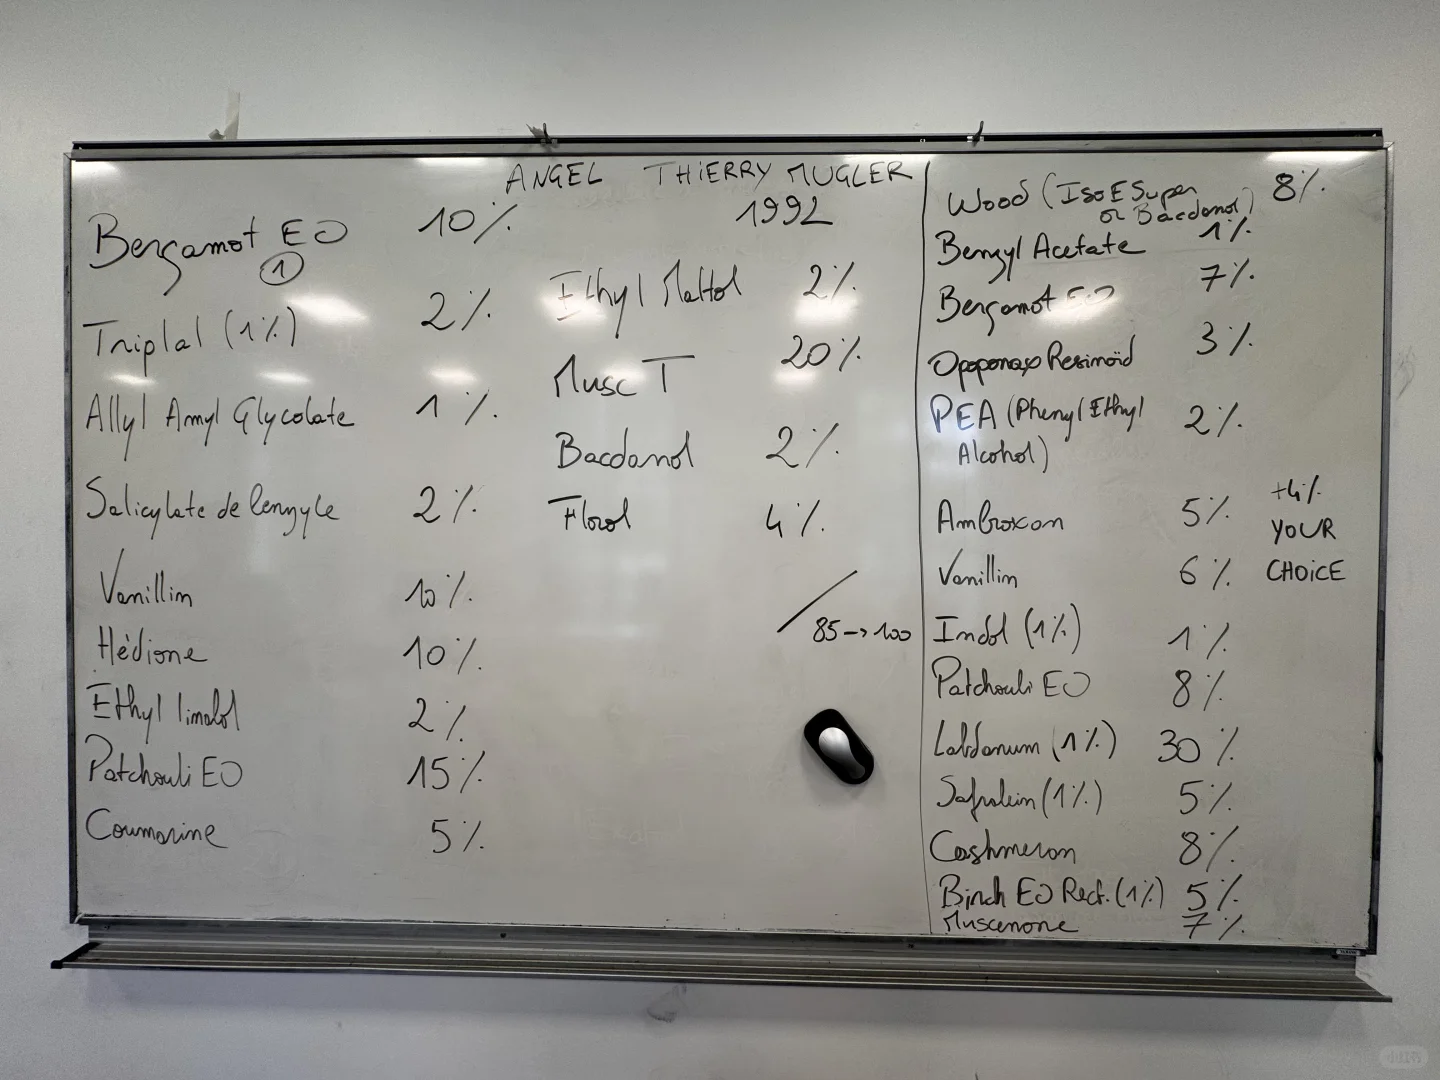 ANGEL THIERRY MUGLER
1992
Bergamot EO 10%
1
Triplal (1%) 2%
Allyl Amyl Glycolate 1%
Salicylate de benzyle 2%
Vanillin 10%
Hédione 10%
Ethyl linalol 2%
Patchouli EO 15%
Coumarine 5%
Ethyl Maltol 2%
Musc T 20%
Bacdanol 2%
Florol 4%
85→100
Wood (Iso E Super 8%
or Bacdanol)
Benzyl Acetate 1%
Bergamot EO 7%
Opoponax Resinoïd 3%
PEA (Phenyl Ethyl 2%
Alcohol)
Ambroxan 5%
Vanillin 6%
Indol (1%) 1%
Patchouli EO 8%
Labdanum (1%) 30%
Safralein (1%) 5%
Cashmeran 8%
Birch EO Rect. (1%) 5%
Muscenone 7%
+4%
YOUR
CHOICE